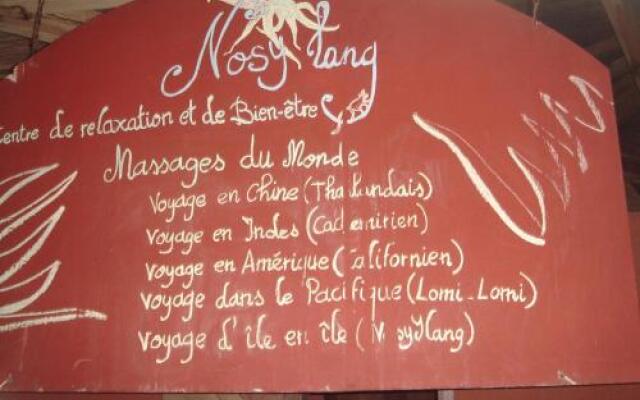 Nosy Lang
Centre de relaxation et de Bien-être
Massages du Monde
Voyage en Chine (Thaïlandais)
Voyage en Indes (Cachemirien)
Voyage en Amérique (Californien)
Voyage dans le Pacifique (Lomi-Lomi)
Voyage d'île en île (